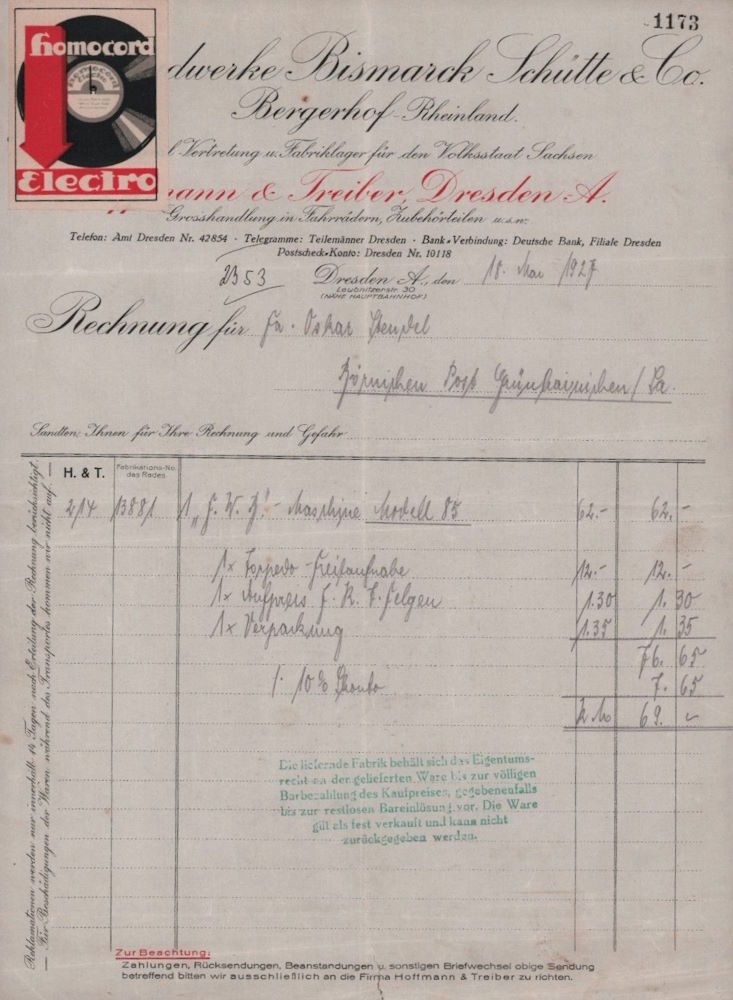 1173
Homocord
Electro
dwerke Bismarck Schütte & Co.
Bergerhof-Rheinland.
l-Vertretung u. Fabriklager für den Volksstaat Sachsen
mann & Treiber, Dresden-A.
Grosshandlung in Fahrrädern, Zubehörteilen u.s.w.
Telefon: Amt Dresden Nr. 42854 · Telegramme: Teilemänner Dresden · Bank-Verbindung: Deutsche Bank, Filiale Dresden
Postscheck-Konto: Dresden Nr. 10118
2353 Dresden A., den 18. Mai 1927
Leubnitzerstr. 30
(NÄHE HAUPTBAHNHOF)
Rechnung für Fa. Oskar Stendel
Post Grünhainichen / Sa.
Sandten Ihnen für Ihre Rechnung und Gefahr
H. & T. Fabrikations-No. des Rades
214 13881 1 Maschine Modell 85 62.- 62. -
1x Torpedo-Freilaufnabe 12.- 12. -
1x Aufpreis f. Felgen 1.30 1. 30
1x Verpackung 1.35 1. 35
76. 65
10% Skonto 7. 65
69. -
Die liefernde Fabrik behält sich das Eigentums-
recht an der gelieferten Ware bis zur völligen
Barbezahlung des Kaufpreises, gegebenenfalls
bis zur restlosen Bareinlösung vor. Die Ware
gilt als fest verkauft und kann nicht
zurückgegeben werden.
Reklamationen werden nur innerhalb 14 Tagen nach Erteilung der Rechnung berücksichtigt.
— Für Beschädigungen der Waren während des Transportes kommen wir nicht auf. —
Zur Beachtung:
Zahlungen, Rücksendungen, Beanstandungen u. sonstigen Briefwechsel obige Sendung
betreffend bitten wir ausschließlich an die Firma Hoffmann & Treiber zu richten.